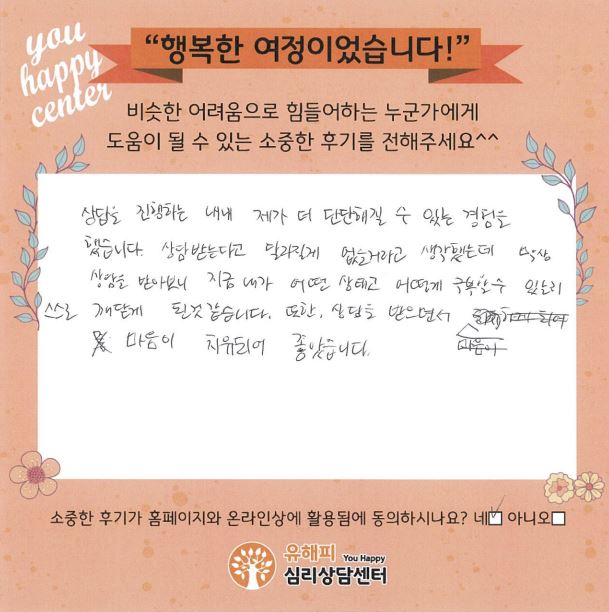 you
happy
center
“행복한 여정이었습니다!”
비슷한 어려움으로 힘들어하는 누군가에게
도움이 될 수 있는 소중한 후기를 전해주세요^^
상담을 진행하는 내내 제가 더 단단해질 수 있는 경험을
했습니다. 상담받는다고 달라질게 없을거라고 생각했는데 막상
상담을 받아보니 지금 내가 어떤 상태고 어떻게 극복할수 있는지
스스로 깨닫게 된것 같습니다. 또한, 상담을 받으면서
마음이 치유되어 좋았습니다.
마음이
소중한 후기가 홈페이지와 온라인상에 활용됨에 동의하시나요? 네 아니오
유해피 You Happy
심리상담센터